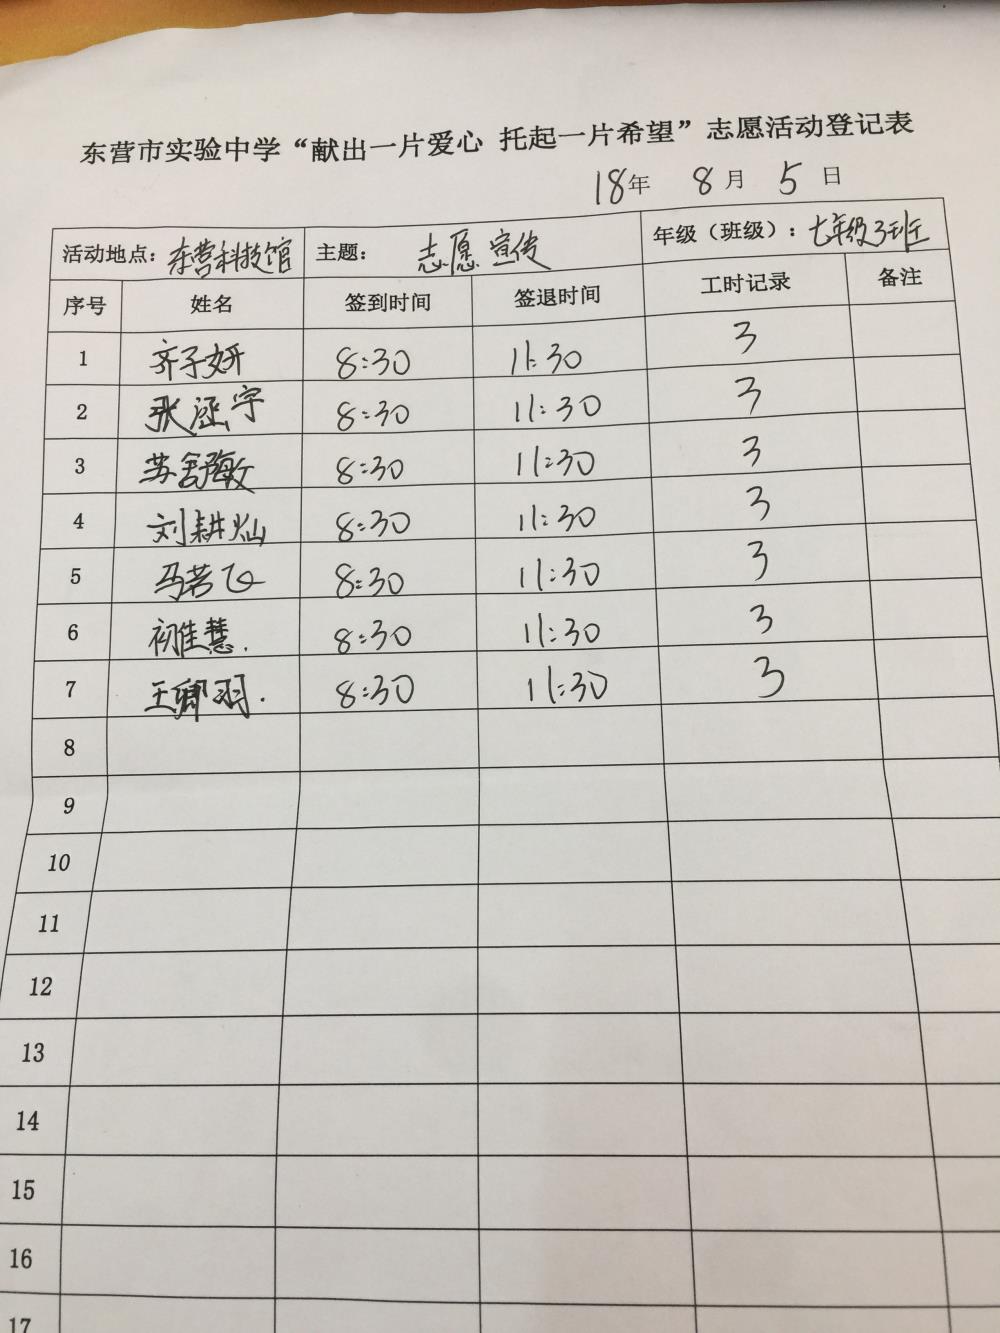 东营市实验中学“献出一片爱心 托起一片希望”志愿活动登记表
18年 8月 5日
活动地点：东营科技馆 主题：志愿宣传 年级（班级）：七年级3班
序号 姓名 签到时间 签退时间 工时记录 备注
1 齐子妍 8:30 11:30 3
2 张涵宇 8:30 11:30 3
3 苏舒敏 8:30 11:30 3
4 刘耕灿 8:30 11:30 3
5 马若飞 8:30 11:30 3
6 初佳慧. 8:30 11:30 3
7 王卿羽. 8:30 11:30 3
8
9
10
11
12
13
14
15
16
17